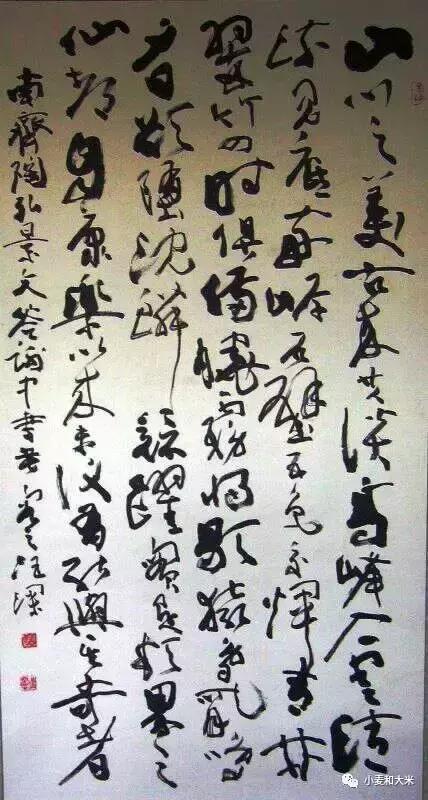 山川之美古來共談高峰入雲清
流見底兩岸石壁五色交輝青林
翠竹四時俱備曉霧將歇猿鳥亂鳴
夕日欲頹沈鱗競躍實是欲界之
仙都自康樂以來未復有能與其奇者
南齊陶弘景文答謝中書書
小麦和大米